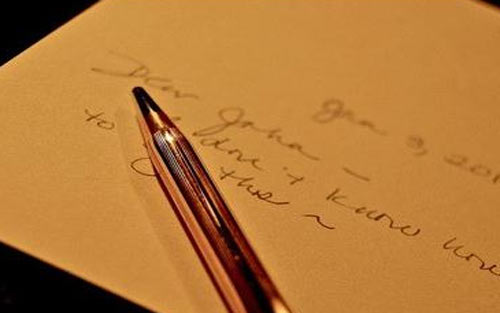 Jan 9, 201
Dear John -
I don't know how
to this ~